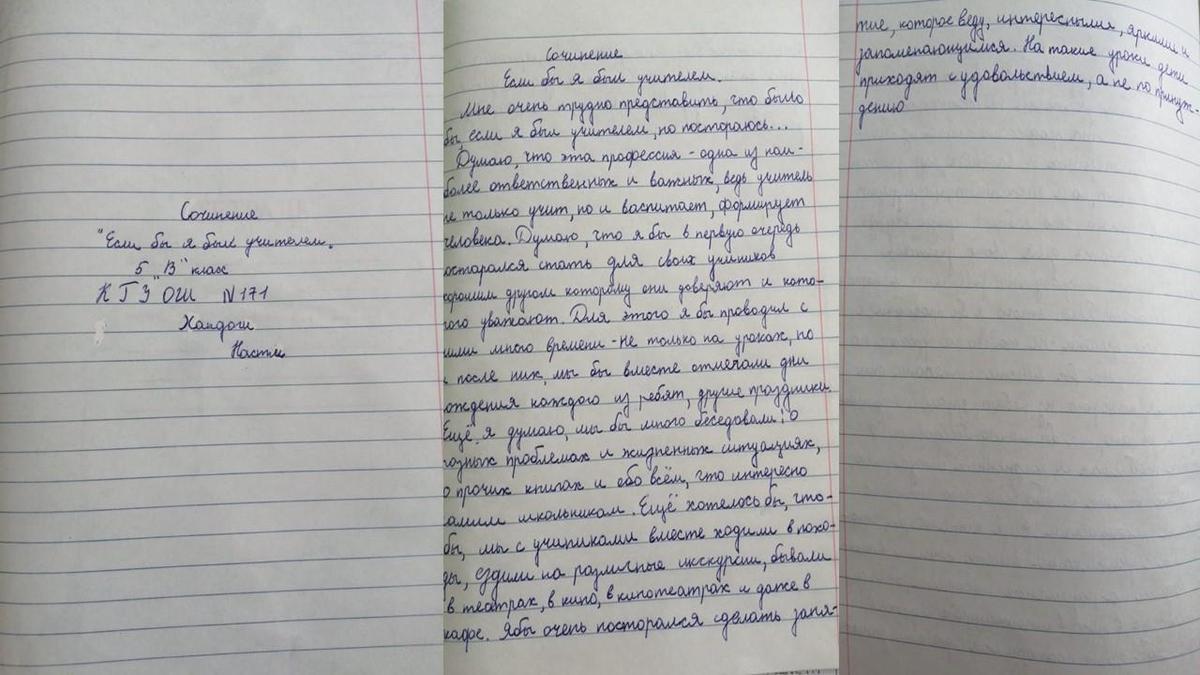 Сочинение
"Если бы я был учителем.
5 "В" класс
КГЗ ОШ №171
Хандош
Настя
Сочинение
Если бы я был учителем.
Мне очень трудно представить, что было
бы, если я был учителем, но постораюсь...
Думаю, что эта профессия - одна из наи-
более ответственных и важных, ведь учитель
не только учит, но и воспитает, формирует
человека. Думаю, что я бы в первую очередь
осторался стать для своих учиников
хорошим другом которому они доверяют и кото-
рого уважают. Для этого я бы проводил с
ними много времени - не только на уроках, но
и после них, мы бы вместе отмечали дни
рождения каждого из ребят, другие праздники.
Ещё, я думаю, мы бы много беседовали! О
разных проблемах и жизненных ситуациях,
о прочих книгах и обо всём, что интересно
самим школьникам. Ещё хотелось бы, что-
бы, мы с учиниками вместе ходили в похо-
ды, ездили на различные икскурсии, бывали
в театрах, в кино, в кинотеатрах и даже в
кафе. Ябы очень посторался сделать заня-
тие, которое веду, интересными, яркими и
запоменающимся. На такие уроки дети
приходят с удовольствием, а не по принуж-
дению